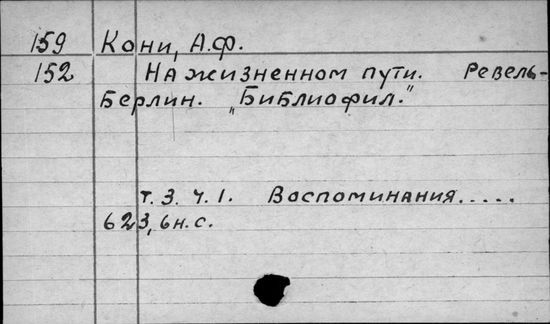 159 Кони, А.Ф.
152 На жизненном пути. Ревель-
Берлин. "Библиофил."
т. 3. ч. 1. Воспоминания.....
623, 6н. с.